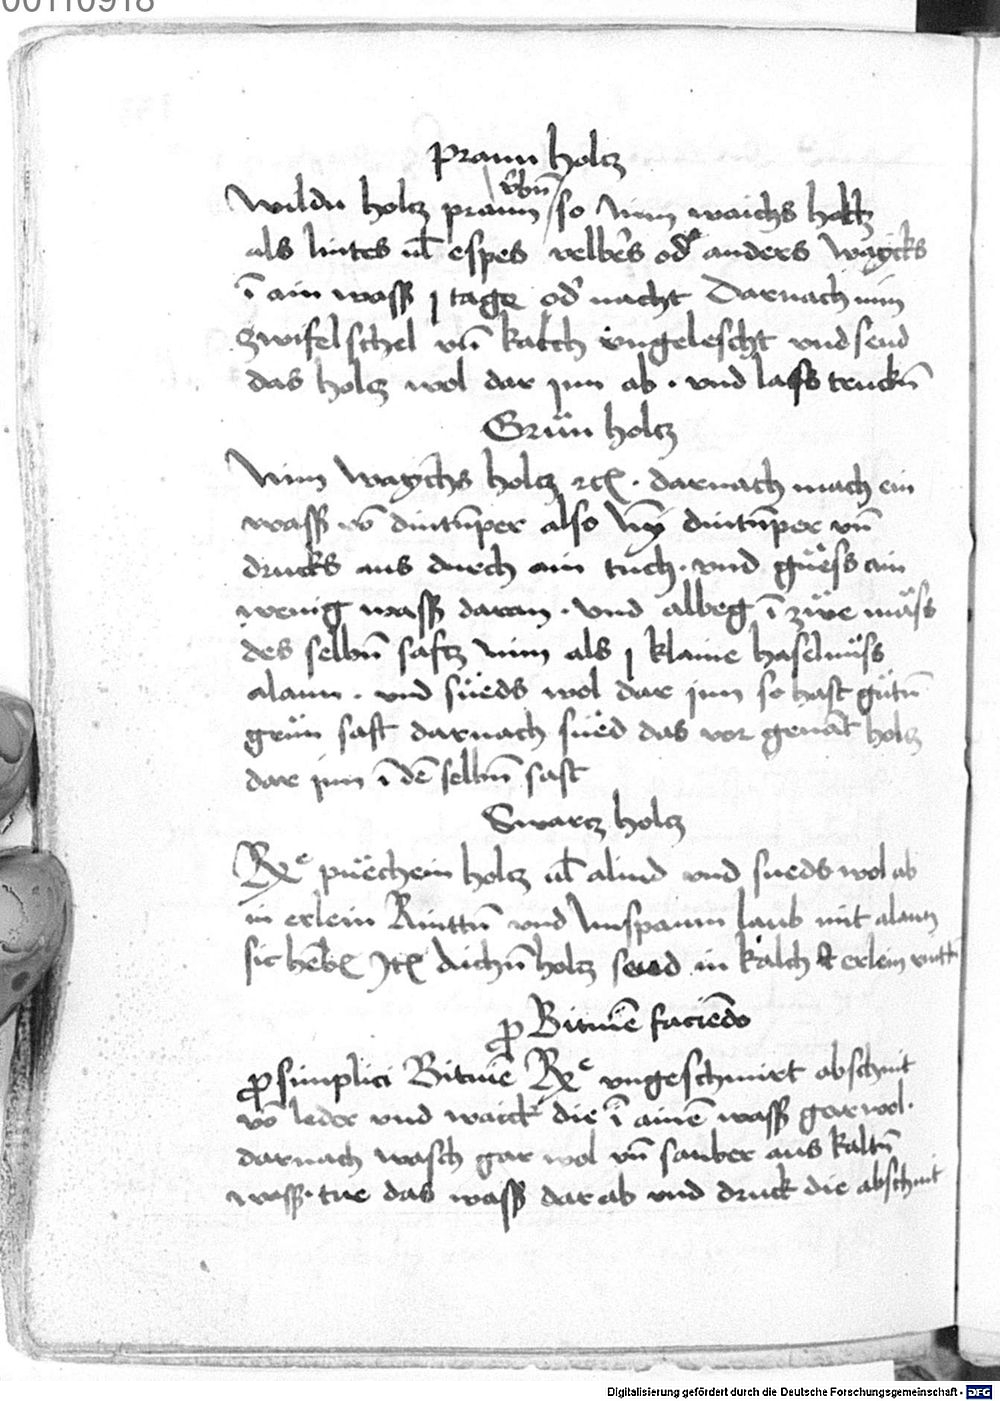 00110918
prawn holcz
v̈bñ
Wildu holcz prawn so Nim waichs holtz
als lintes ul̃ espes velbers od' anders waycks
ī ain wass j tage od' nacht Darnach nim
zwifel schel vñ kalch vngelescht vnd seud
das holcz wol dar jnn ab . vnd lass truckñ
Grün holcz
Nim waychs holcz . darnach mach ein
wass vō dintñper also dintñper vñ
drucks aus durch ain tuch . vnd güess ain
wenig wass daran . vnd albeg ī zwe mäss
des selbñ saftz nim als j klaine haselnüss
alaun . vnd süeds wol dar jnn so hast gütñ
grün saft darnach süed das vor genāt holcz
dar jnn ī dē selbñ saft
Swartz holcz
Rc püechein holcz ul̃ aliud vnd sueds wol ab
in erlein Rinttñ vnd laub mit alaun
holcz in kalch et erlein rintt
ꝓ Bitumē faciēdo
ꝓ simplici Bitumē Rc vngeschmirt abschnit
vō leder vnd waick die ī ainē wass gar wol .
darnach wasch gar wol vñ sauber aus kaltñ
wass . tue das wass dar ab vnd druck die abschnit
Digitalisierung gefördert durch die Deutsche Forschungsgemeinschaft - DFG